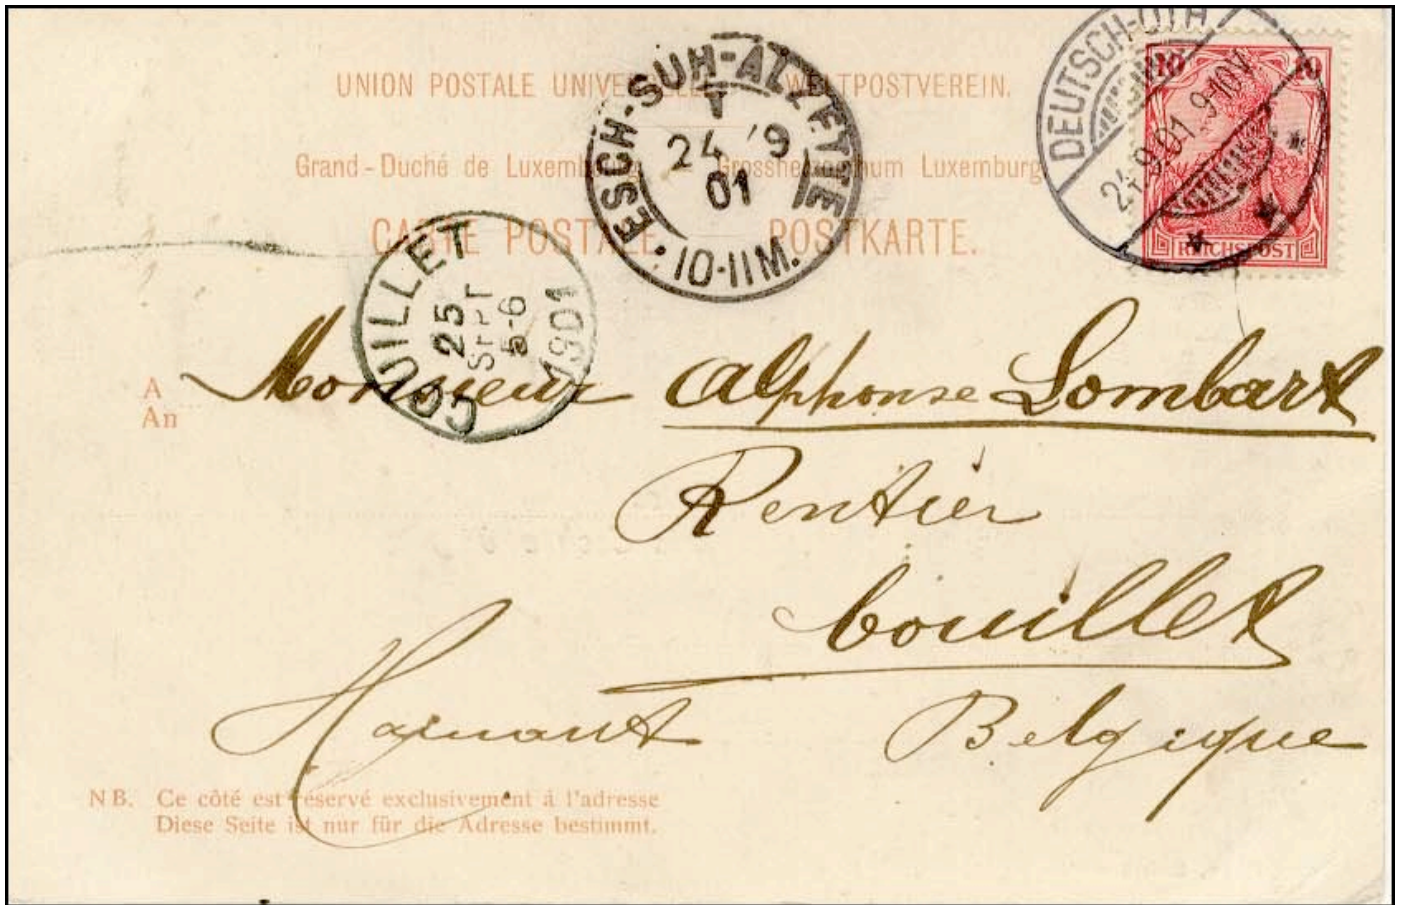 UNION POSTALE UNIVERSELLE WELTPOSTVEREIN.
Grand-Duché de Luxembourg — Grossherzogthum Luxemburg
CARTE POSTALE POSTKARTE.
DEUTSCH-OTH
24.9.01. 9-10V.
10 10
REICHSPOST
ESCH-SUR-ALZETTE
24 9
01
10-11M.
COUILLET
25
SEPT
5-6
1901
A
An
Monsieur Alphonse Lombart
Rentier
Couillet
Hainaut Belgique
NB. Ce côté est réservé exclusivement á l'adresse
Diese Seite ist nur für die Adresse bestimmt.